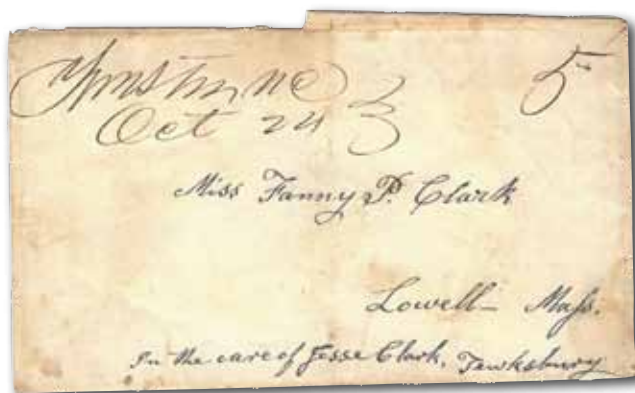 5
Oct 24
Miss Fanny P. Clark
Lowell – Mass.
In the care of Jesse Clark, Tewksbury